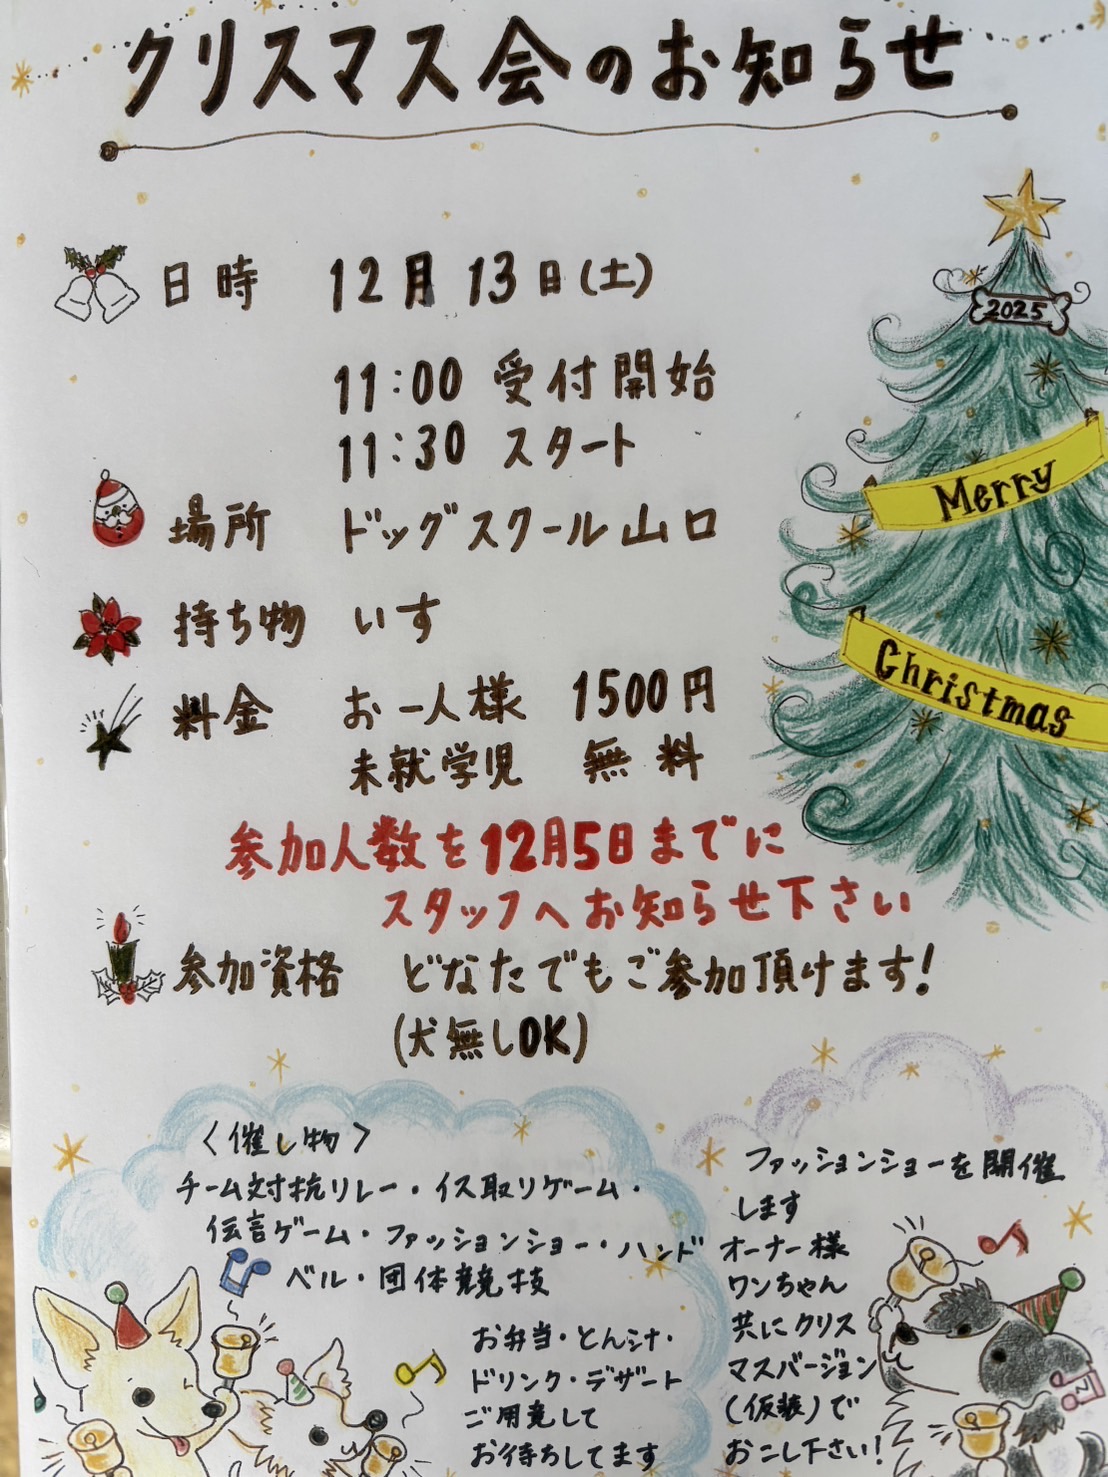 クリスマス会のお知らせ
日時 12月13日(土)
11:00 受付開始
11:30 スタート
場所 ドッグスクール山口
持ち物 いす
料金 お一人様 1500円
未就学児 無料
参加人数を12月5日までに
スタッフへお知らせ下さい
参加資格 どなたでもご参加頂けます!
(犬無しOK)
2025
Merry
Christmas
〈催し物〉
チーム対抗リレー・イス取りゲーム・
伝言ゲーム・ファッションショー・ハンド
ベル・団体競技
お弁当・とん汁・
ドリンク・デザート
ご用意して
お待ちしてます
ファッションショーを開催
します
オーナー様
ワンちゃん
共にクリス
マスバージョン
(仮装)で
おこし下さい!